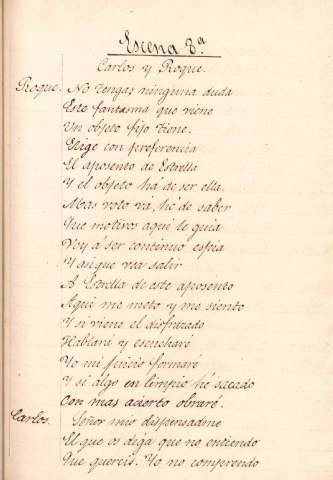 Escena 8ª
Carlos y Roque.
Roque. No tengas ninguna duda
Este fantasma que viene
Un objeto fijo tiene.
Elige con preferencia
El aposento de Estrella
Y el objeto há de ser ella.
Mas voto vá, hé de saber
Que motivos aqui le guia
Voy á ser continuo espia
Y aunque vea salir
A Estrella de este aposento
Aqui me meto y me siento
Y si viene el disfrazado
Hablará y escucharé
Yo mi juicio formaré
Y si algo en limpio hé sacado
Con mas acierto obraré.
Carlos. Señor mio dispensadme
El que os diga que no entiendo
Que quereis. Yo no comprendo